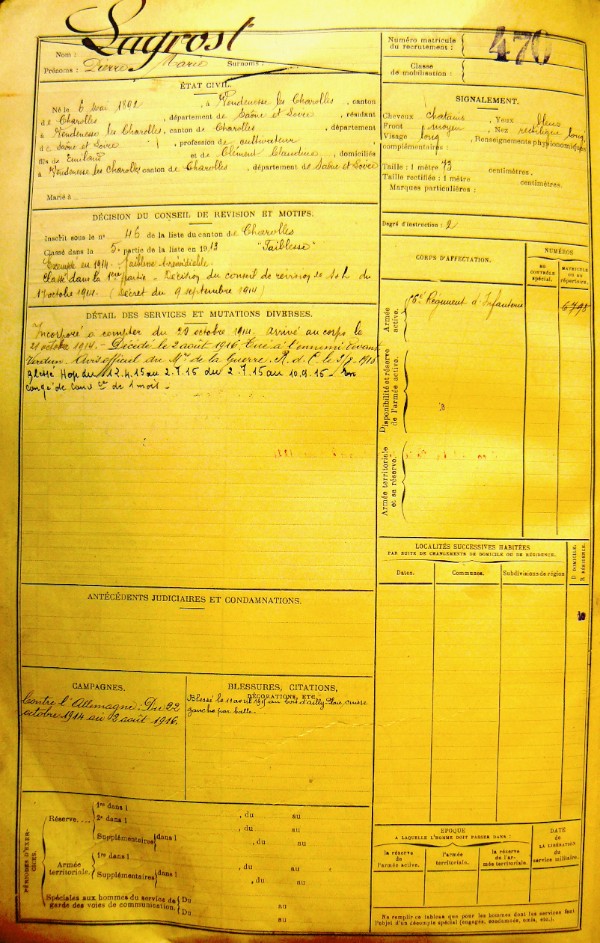 Lagrost
Nom :
Prénoms : Pierre Marie Surnoms :
Numéro matricule du recrutement : 470
Classe de mobilisation :
ÉTAT CIVIL.
Né le 6 mai 1892, à Vendenesse les Charolles, canton
de Charolles, département de Saône et Loire, résidant
à Vendenesse les Charolles, canton de Charolles, département
de Saône et Loire, profession de cultivateur
fils de Emiland et de Clément Claudine, domiciliés
à Vendenesse les Charolles canton de Charolles, département de Saône et Loire
Marié à
SIGNALEMENT.
Cheveux châtains, Yeux bleus
Front moyen, Nez rectiligne long
Visage long, Renseignements physionomiques
complémentaires :
Taille : 1 mètre 73 centimètres,
Taille rectifiée : 1 mètre centimètres.
Marques particulières :
Degré d'instruction : 2
DÉCISION DU CONSEIL DE RÉVISION ET MOTIFS.
Inscrit sous le n° 46 de la liste du canton de Charolles
Classé dans la 5e partie de la liste en 1913 "Faiblesse"
Exempté en 1914
Classé dans la 1ère partie - Décision du conseil de révision de S et L du
17 octobre 1914. (Décret du 9 septembre 1914)
CORPS D'AFFECTATION.
NUMÉROS
AU CONTRÔLE SPÉCIAL.
MATRICULE OU AU RÉPERTOIRE.
Armée active.
Régiment d'Infanterie
6798
Disponibilité et réserve de l'armée active.
Armée territoriale et sa réserve.
DÉTAIL DES SERVICES ET MUTATIONS DIVERSES.
Incorporé à compter du 20 octobre 1914. arrivé au corps le
21 octobre 1914. - Décédé le 2 août 1916. Tué à l'ennemi devant
Verdun. Avis officiel du Mre de la Guerre.
Blessé Hop du 12.4.15 au 2.7.15 du 2.7.15 au 10.9.15 -
congé de conv ce de 1 mois -
LOCALITÉS SUCCESSIVES HABITÉES
PAR SUITE DE CHANGEMENTS DE DOMICILE OU DE RÉSIDENCE.
Dates. Communes. Subdivisions de région D. DOMICILE. R. RÉSIDENCE.
ANTÉCÉDENTS JUDICIAIRES ET CONDAMNATIONS.
CAMPAGNES.
Contre l'Allemagne : Du 22
octobre 1914 au 2 août 1916.
BLESSURES, CITATIONS,
DÉCORATIONS, ETC.
Blessé le 1915 au bois d'Ailly. cuisse
gauche par balle.
PÉRIODES D'EXERCICES.
Réserve....
1re dans l , du au
2e dans l , du au
Supplémentaires dans l , du au
, du au
Armée territoriale.
1re dans l , du au
Supplémentaires dans l , du au
, du au
Spéciales aux hommes du service de garde des voies de communication.
Du au
Du au
ÉPOQUE
A LAQUELLE L'HOMME DOIT PASSER DANS :
la réserve de l'armée active.
l'armée territoriale.
la réserve de l'armée territoriale.
DATE
de
LA LIBÉRATION
du service militaire.
Ne remplir ce tableau que pour les hommes dont les services font
l'objet d'un décompte spécial (engagés, condamnés, omis, etc.).